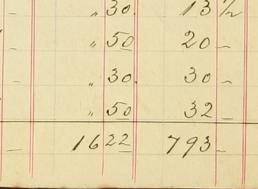 „ 30. 13 ½
– „ 50 20 –
– „ 30. 30 –
– „ 50 32 –
16 22 793 –